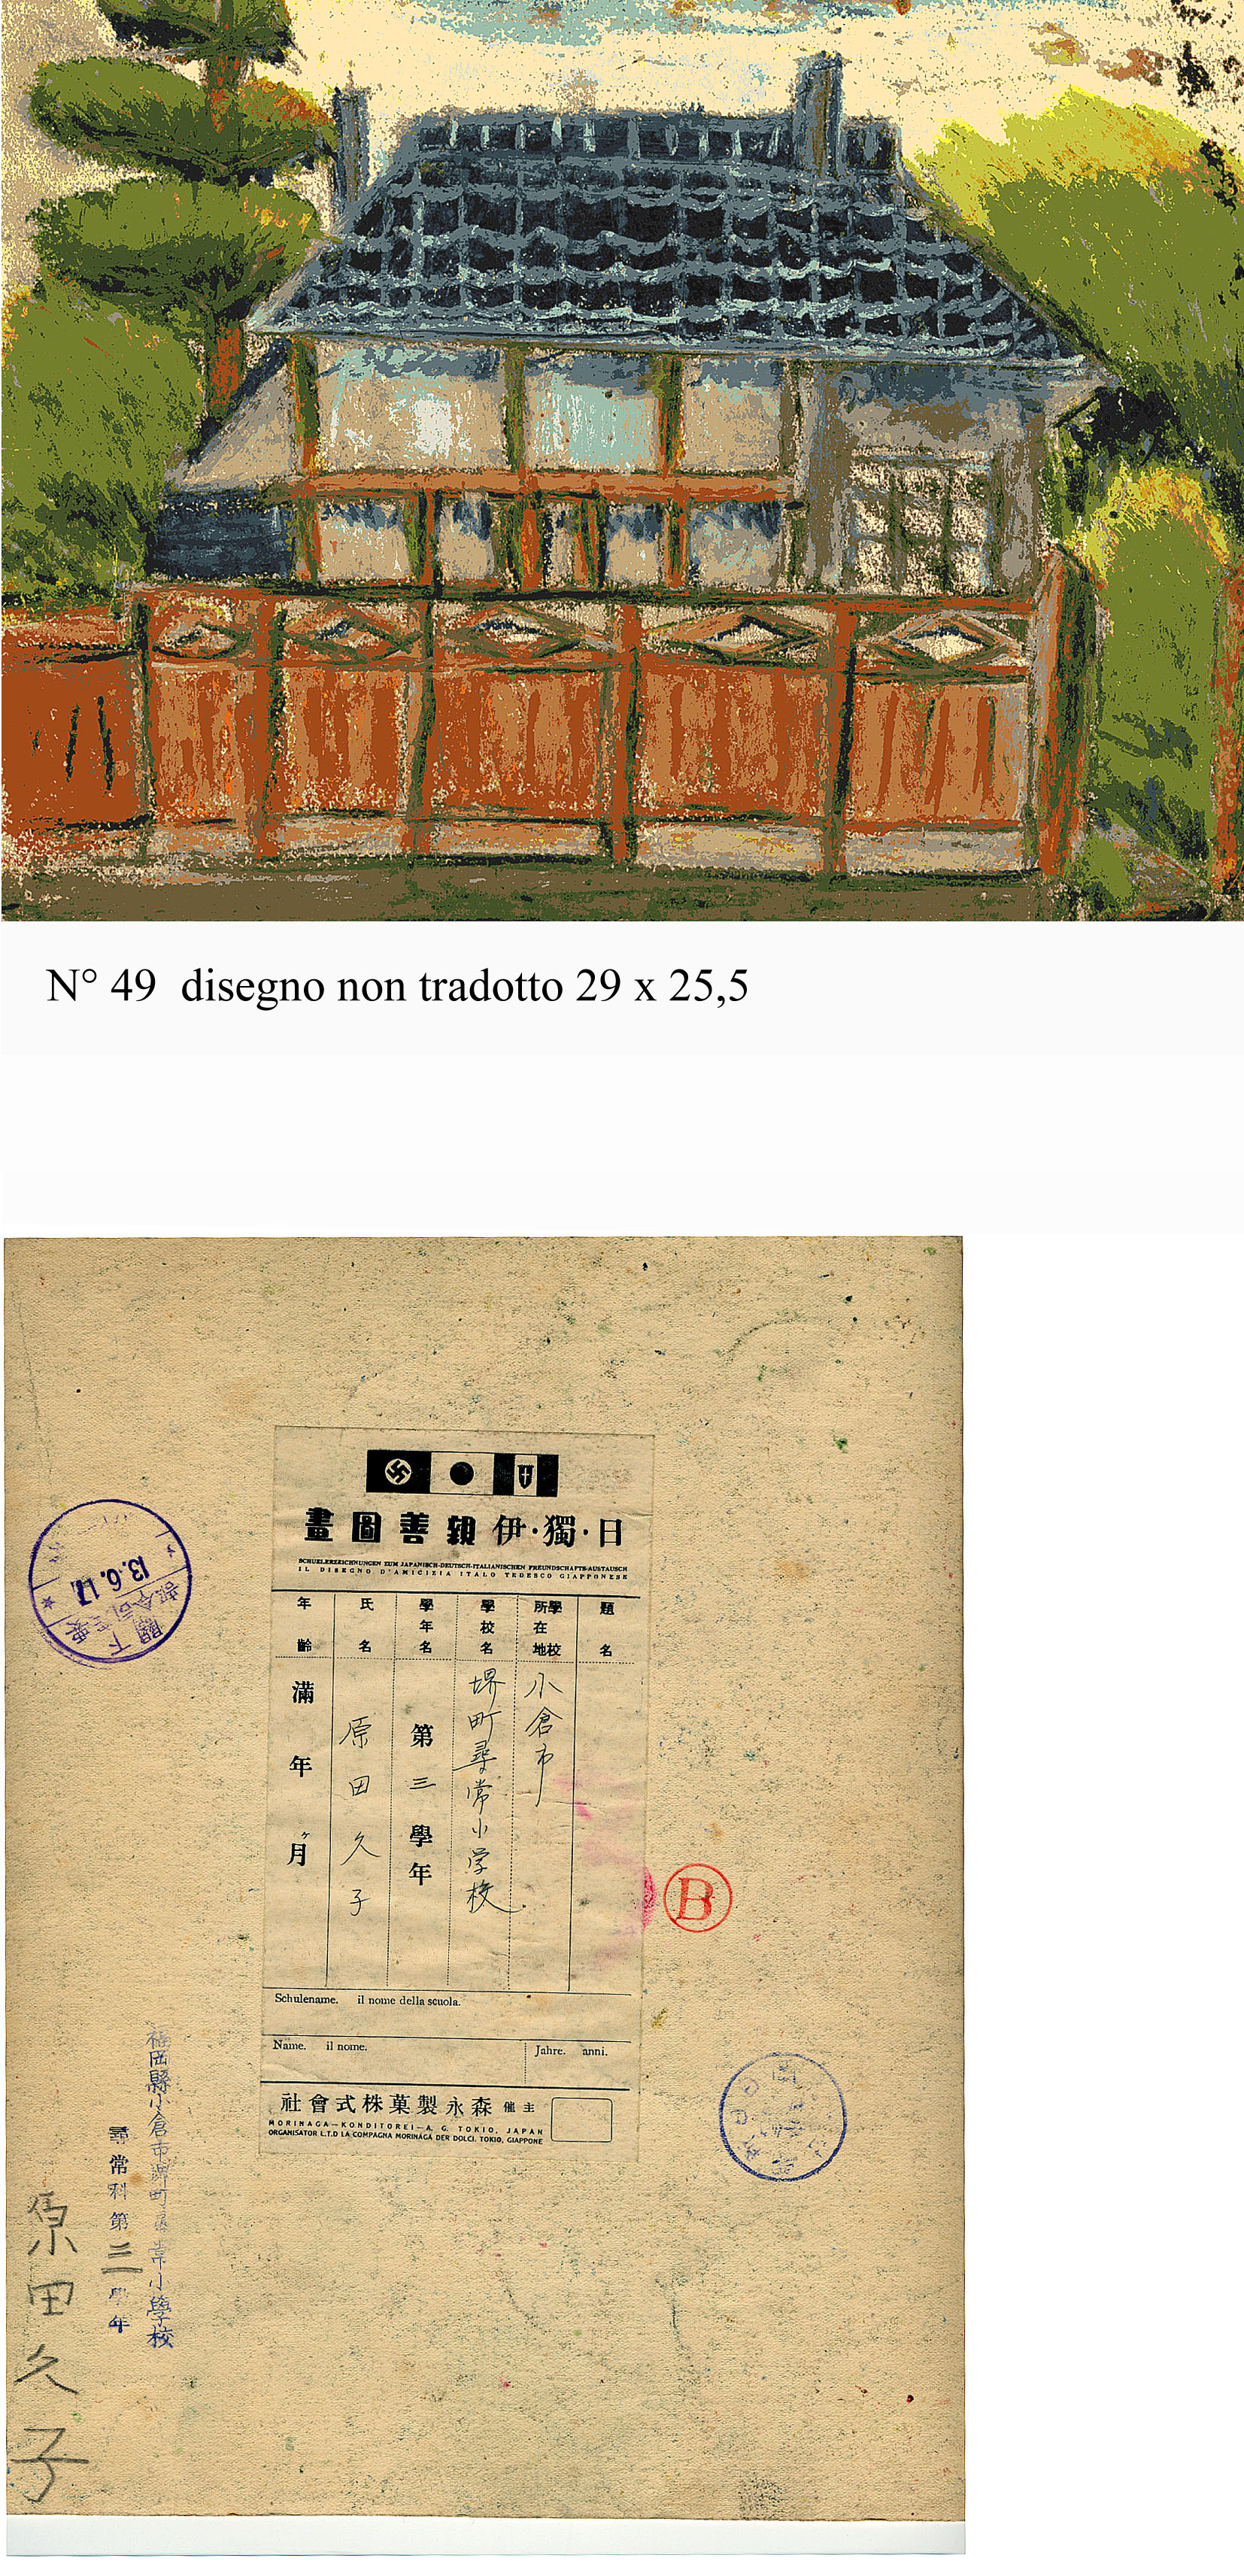 N° 49 disegno non tradotto 29 x 25,5
日・獨・伊親善圖畫
SCHUELERZEICHNUNGEN ZUM JAPANISCH-DEUTSCH-ITALIANISCHEN FREUNDSCHAFTS-AUSTAUSCH
IL DISEGNO D'AMICIZIA ITALO TEDESCO GIAPPONESE
題名
學校所在地 小倉市
學校名 堺町尋常小学校
學年名 第三學年
氏名 原田久子
年齡 滿 年 ヶ月
Schulename. il nome della scuola.
Name. il nome.
Jahre. anni.
主催 森永製菓株式會社
MORINAGA-KONDITOREI-A. G. TOKIO, JAPAN
ORGANISATOR L.T.D LA COMPAGNA MORINAGA DER DOLCI. TOKIO, GIAPPONE
B
13.6.17
福岡縣小倉市堺町尋常小學校
尋常科第三學年
原田久子